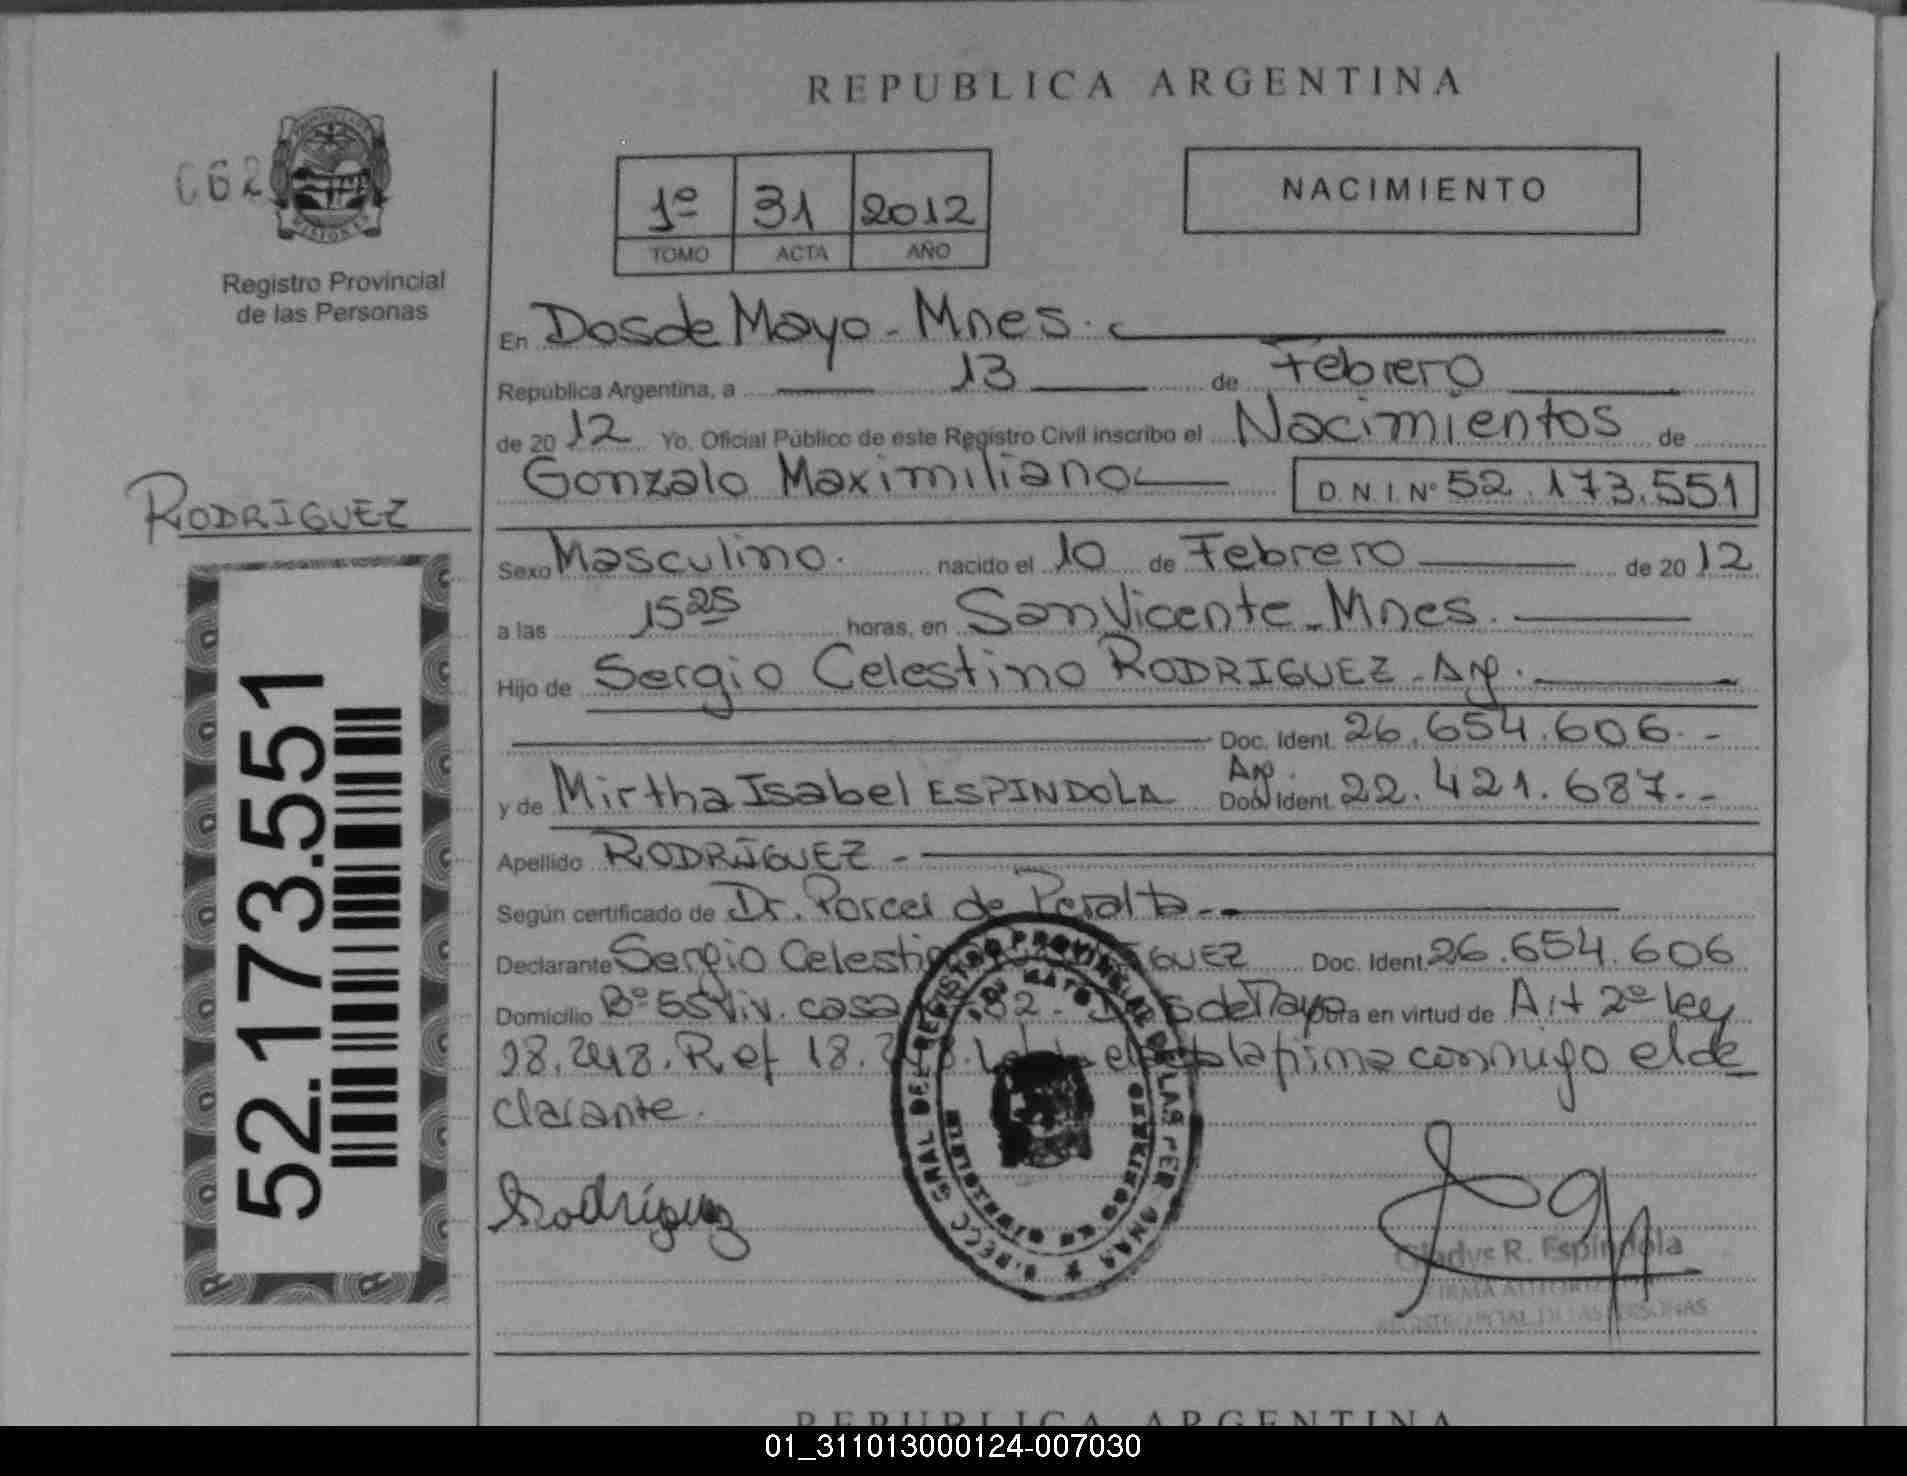 REPUBLICA ARGENTINA
062
MISIONES
Registro Provincial
de las Personas
1º 31 2012
TOMO ACTA AÑO
NACIMIENTO
En Dos de Mayo - Mnes.
República Argentina, a 13 de Febrero
de 2012 Yo, Oficial Público de este Registro Civil inscribo el Nacimientos de
Gonzalo Maximiliano D.N.I. Nº 52.173.551
RODRIGUEZ
Sexo Masculino. nacido el 10 de Febrero de 2012
a las 15 25 horas, en San Vicente - Mnes.
Hijo de Sergio Celestino RODRIGUEZ - Arg.
Doc. Ident. 26.654.606.-
y de Mirtha Isabel ESPINDOLA Arg. Doc. Ident. 22.421.687.-
Apellido RODRIGUEZ -
Según certificado de Dr. Porcel de Peralta -
Declarante Sergio Celestino RODRIGUEZ Doc. Ident. 26.654.606
Domicilio Bº 55 Viv. casa 82 - Dos de Mayo Obra en virtud de Art 2º ley
18.248. Ref 18. la firma conmigo el de
clarante.
52.173.551
Rodríguez
Gladys R. Espíndola
FIRMA AUTORIZADA
REGISTRO PCIAL. DE LAS PERSONAS
REPUBLICA ARGENTINA
01_311013000124-007030